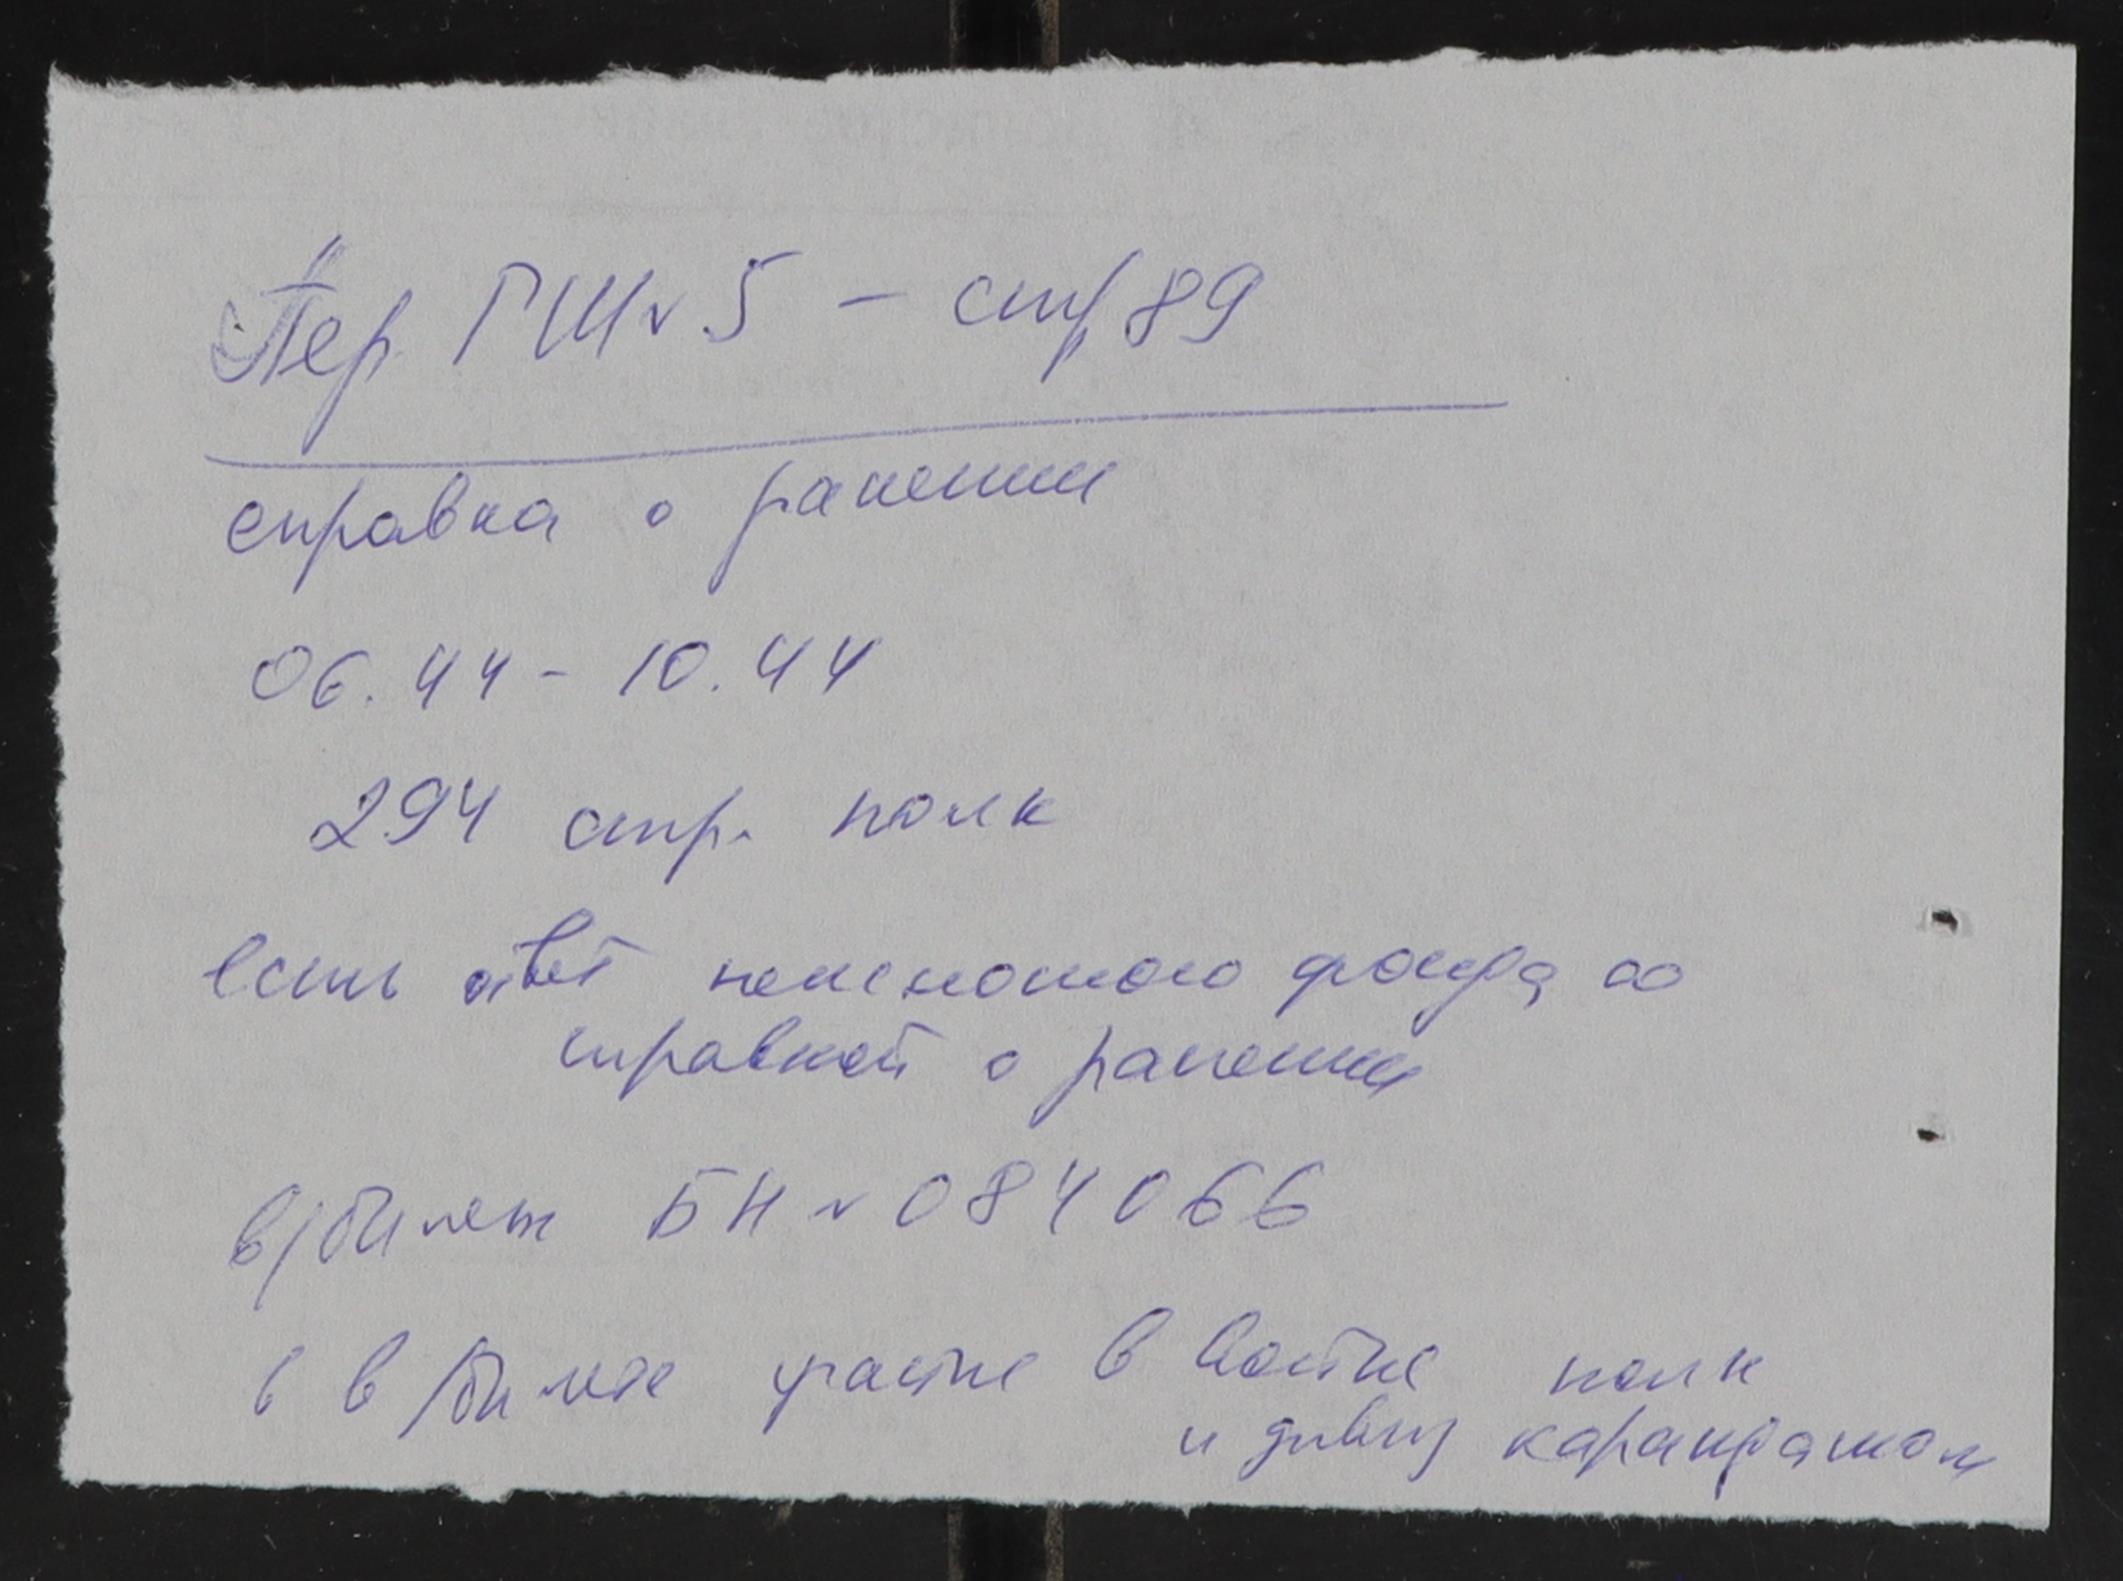 Пер ГШ № 5 – стр 89
справка о ранении
06.44 – 10.44
294 стр. полк
есть ответ пенсионного фонда со
справкой о ранении
в/билет БН № 084066
в в/билете участие в войне полк
и дивиз карандашом